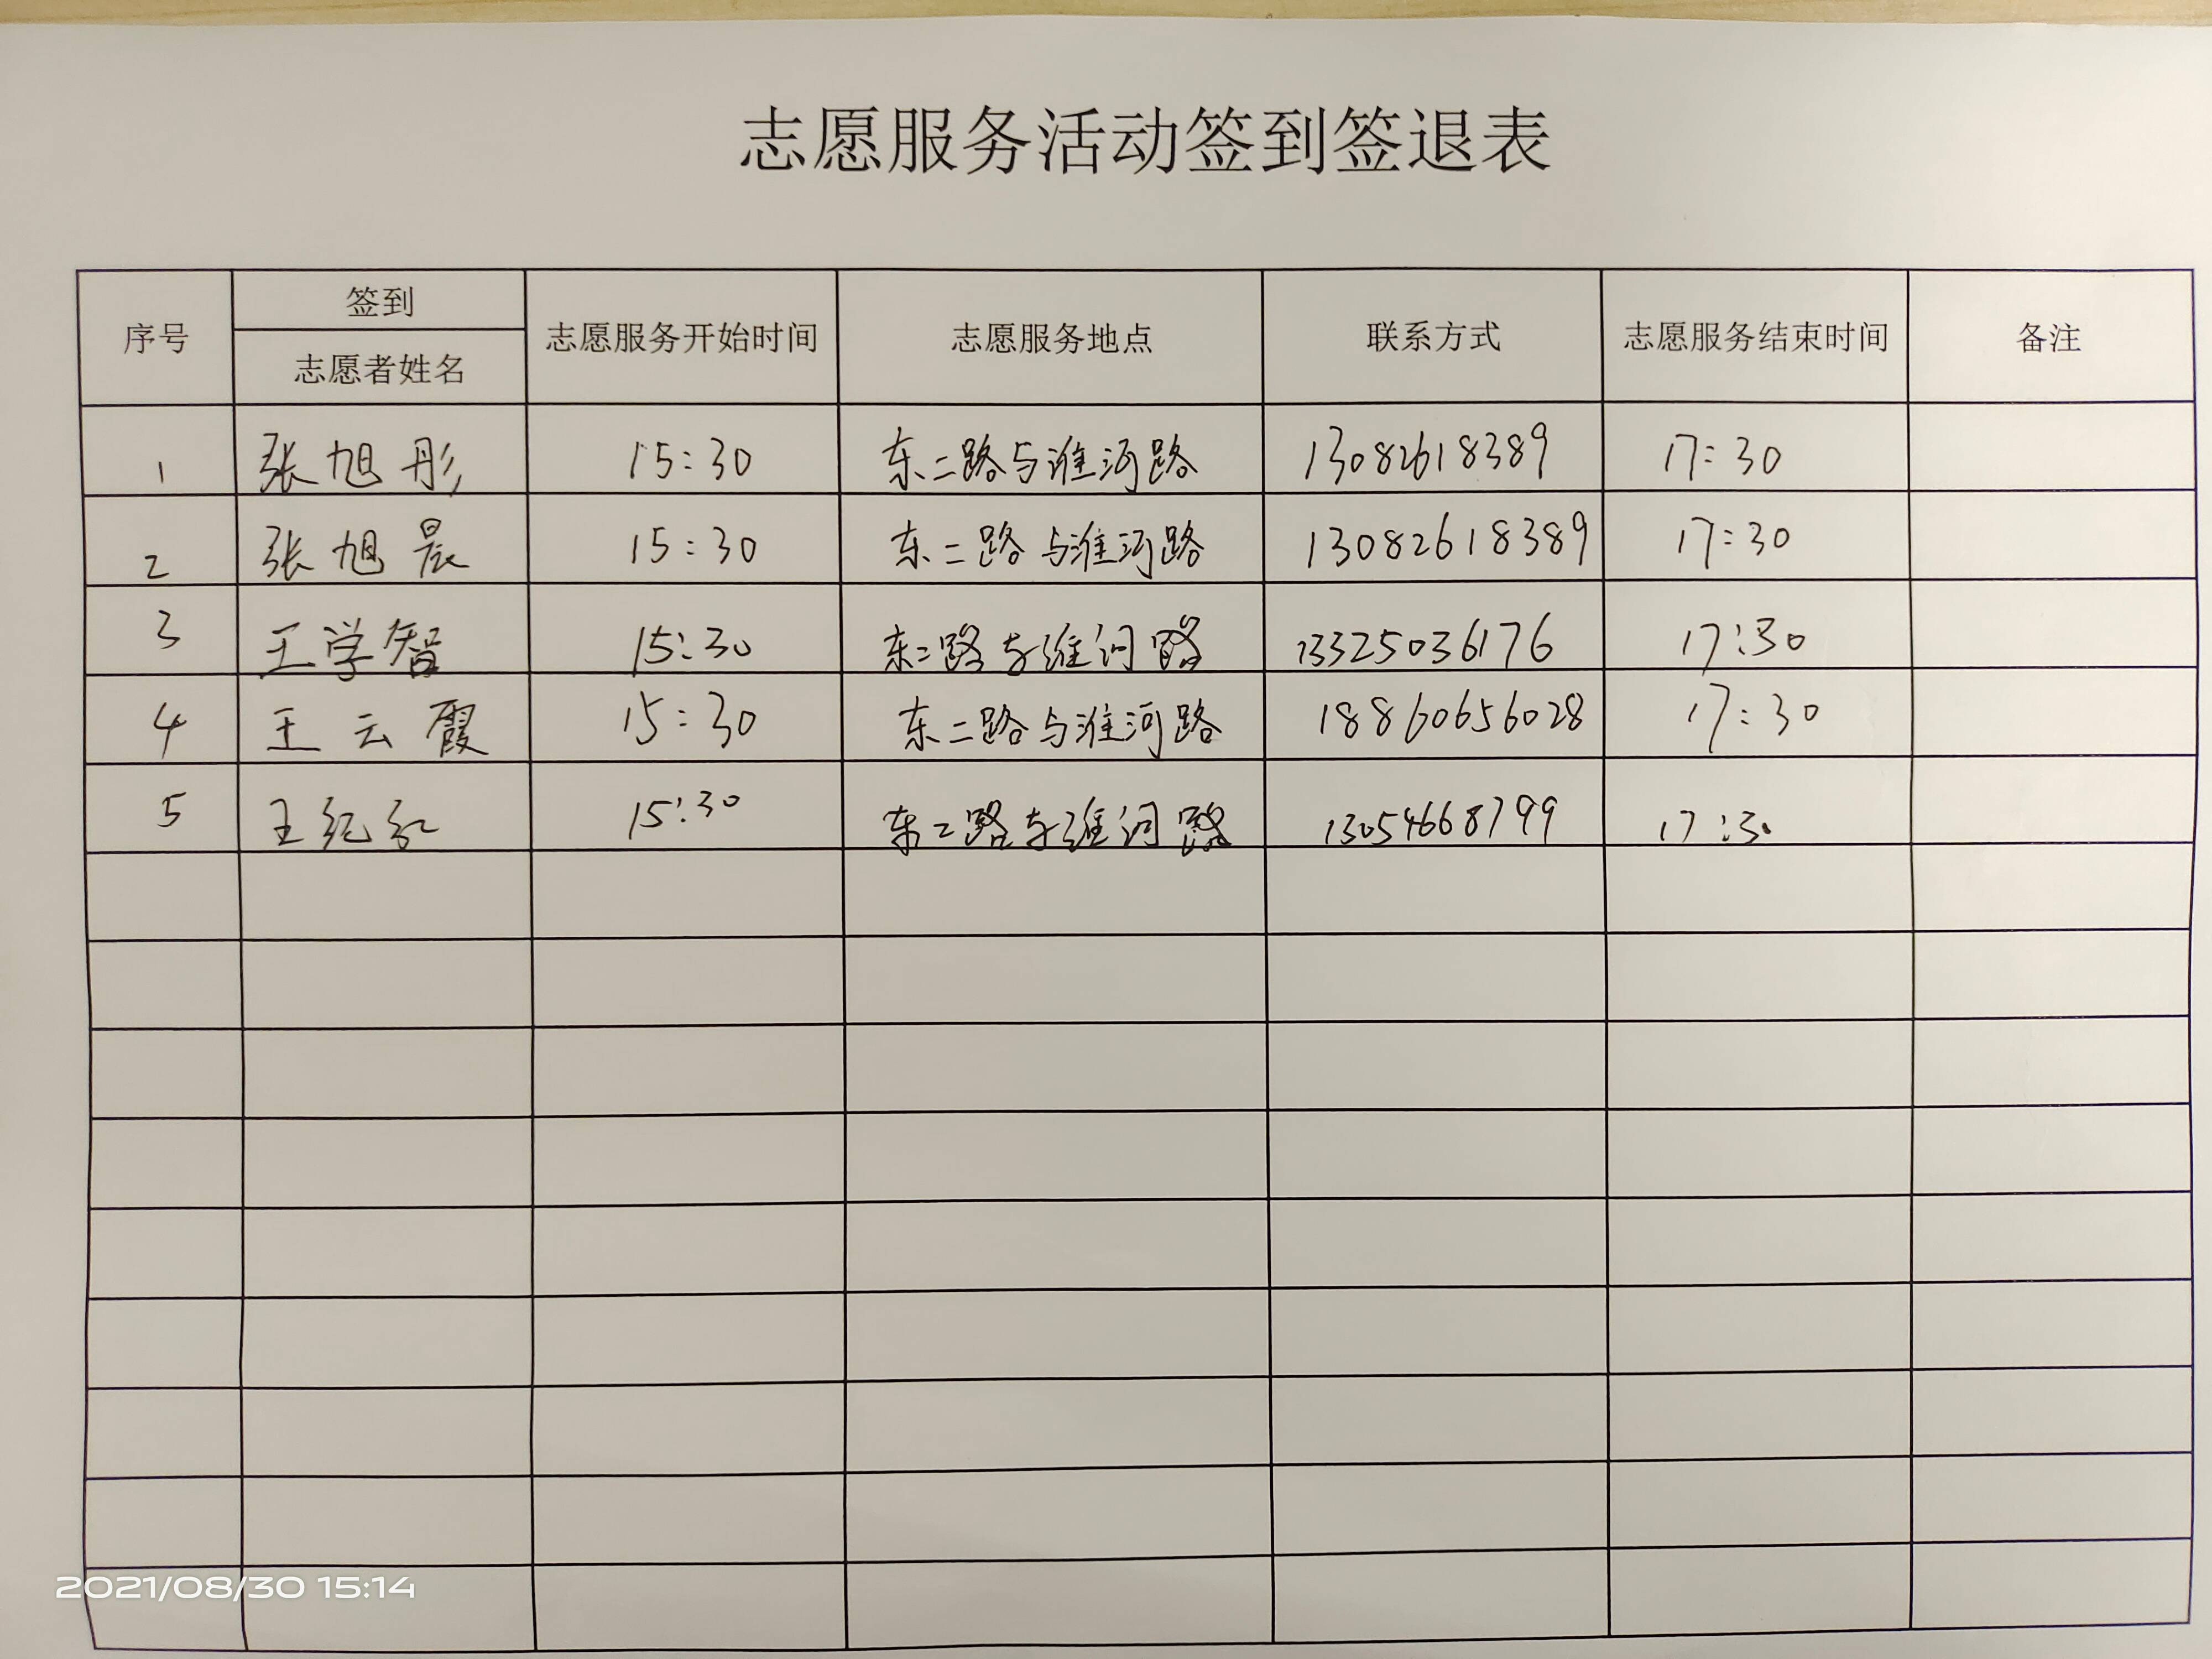 志愿服务活动签到签退表
序号 签到 志愿者姓名 志愿服务开始时间 志愿服务地点 联系方式 志愿服务结束时间 备注
1 张旭彤 15:30 东二路与淮河路 13082618389 17:30
2 张旭晨 15:30 东二路与淮河路 13082618389 17:30
3 王学智 15:30 东二路与淮河路 13325036176 17:30
4 王云霞 15:30 东二路与淮河路 18860656028 17:30
5 王纪红 15:30 东二路与淮河路 13054668799 17:30
2021/08/30 15:14